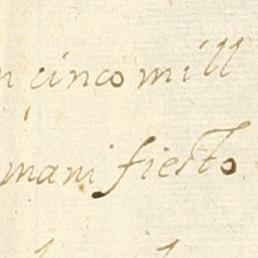 n cinco mill
manifiesto